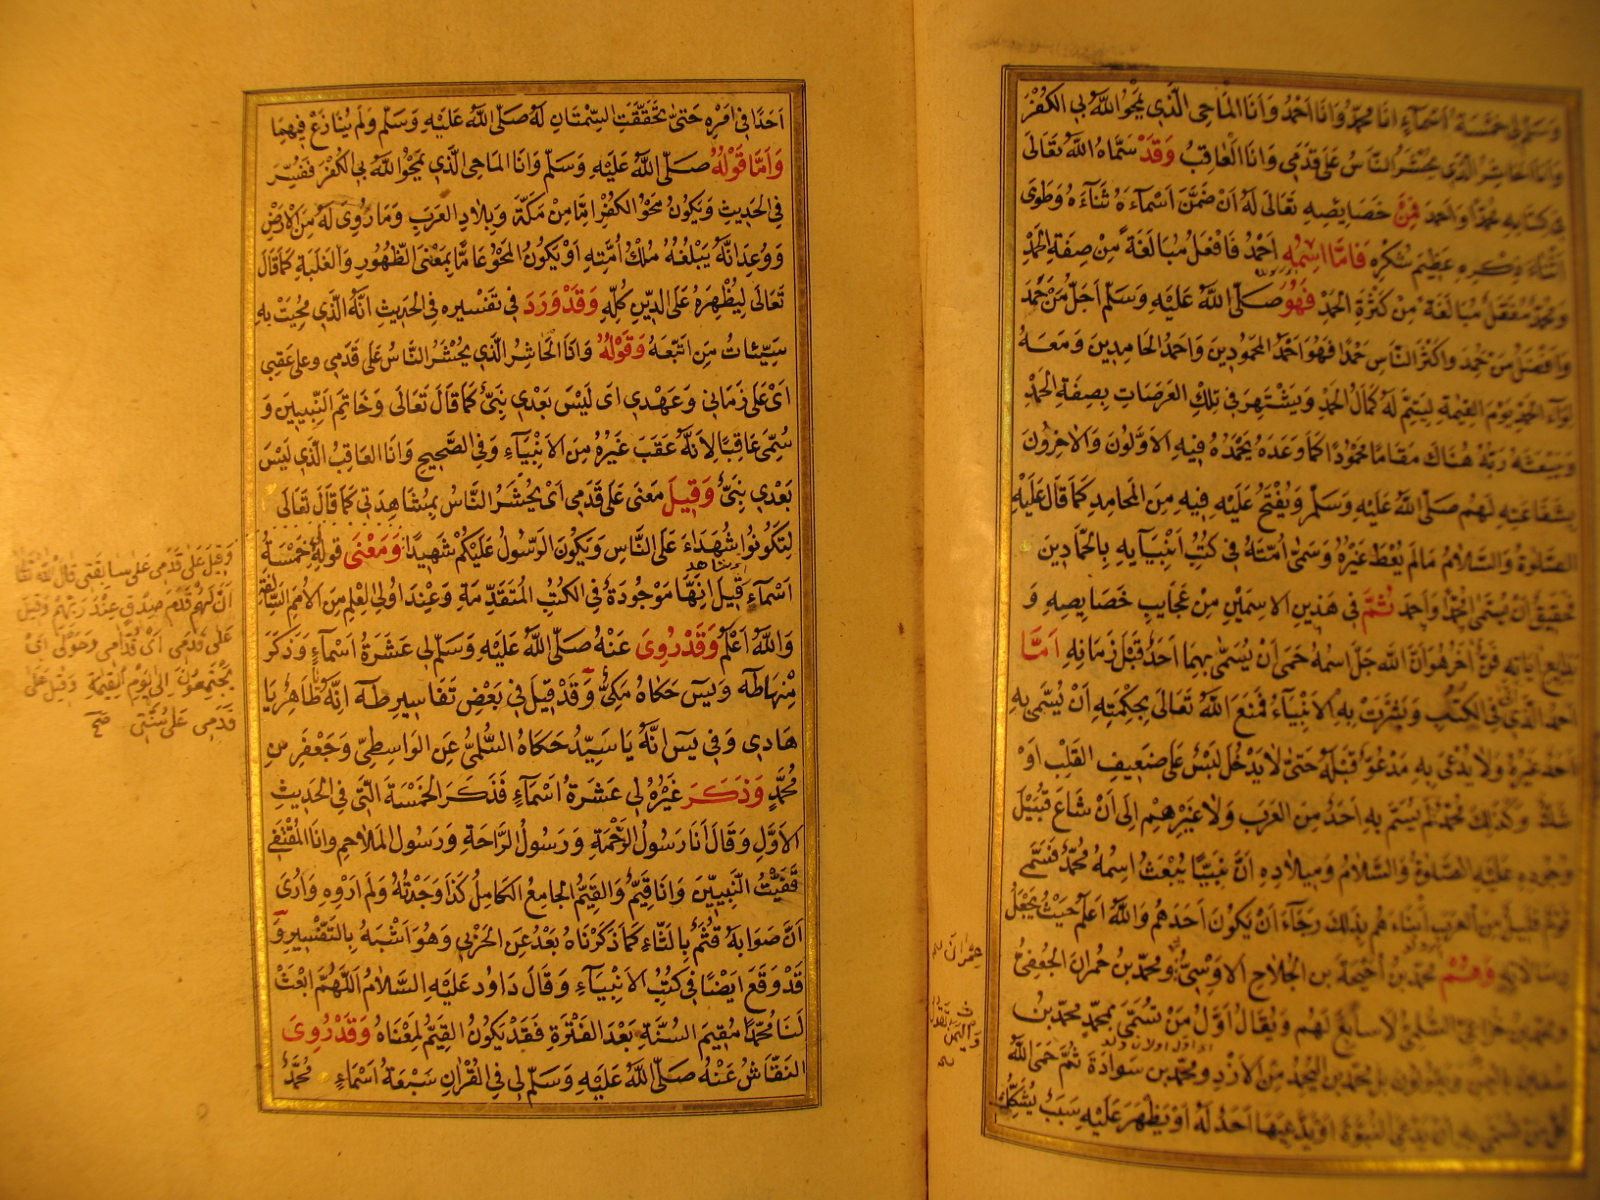 وَسَلَّمَ لِي خَمْسَةُ اَسْمَآءٍ اَنَا مُحَمَّدٌ وَاَنَا اَحْمَدُ وَاَنَا الْمَاحِي الَّذِي يَمْحُوا اللّٰهُ بِيَ الْكُفْرَ
وَاَنَا الْحَاشِرُ الَّذِي يُحْشَرُ النَّاسُ عَلٰى قَدَمِي وَاَنَا الْعَاقِبُ وَقَدْ سَمَّاهُ اللّٰهُ تَعَالٰى
فِي كِتَابِهِ مُحَمَّدًا وَاَحْمَدَ فَمِنْ خَصَايِصِهِ تَعَالٰى لَهُ اَنْ ضَمَّنَ اَسْمَاءَهُ ثَنَآءَهُ وَطَوٰى
اَثْنَاءَ ذِكْرِهِ عَظِيمَ شُكْرِهِ فَاَمَّا اسْمُهُ اَحْمَدُ فَاَفْعَلُ مُبَالَغَةً مِنْ صِفَةِ الْحَمْدِ
وَمُحَمَّدٌ مُفَعَّلٌ مُبَالَغَةً مِنْ كَثْرَةِ الْحَمْدِ فَهُوَ صَلَّى اللّٰهُ عَلَيْهِ وَسَلَّمَ اَجَلُّ مَنْ حَمِدَ
وَاَفْضَلُ مَنْ حُمِدَ وَاَكْثَرُ النَّاسِ حَمْدًا فَهُوَ اَحْمَدُ الْمَحْمُودِينَ وَاَحْمَدُ الْحَامِدِينَ وَمَعَهُ
لِوَآءُ الْحَمْدِ يَوْمَ الْقِيٰمَةِ لِيَتِمَّ لَهُ كَمَالُ الْحَمْدِ وَيَشْتَهِرَ فِي تِلْكَ الْعَرَصَاتِ بِصِفَةِ الْحَمْدِ
وَيَبْعَثَهُ رَبُّهُ هُنَاكَ مَقَامًا مَحْمُودًا كَمَا وَعَدَهُ يَحْمَدُهُ فِيهِ الْاَوَّلُونَ وَالْاٰخِرُونَ
بِشَفَاعَتِهِ لَهُمْ صَلَّى اللّٰهُ عَلَيْهِ وَسَلَّمَ وَيُفْتَحُ عَلَيْهِ فِيهِ مِنَ الْمَحَامِدِ كَمَا قَالَ عَلَيْهِ
الصَّلٰوةُ وَالسَّلَامُ مَا لَمْ يُعْطَ غَيْرُهُ وَسَمّٰى اُمَّتَهُ فِي كُتُبِ اَنْبِيَآيِهِ بِالْحَمَّادِينَ
فَحَقِيقٌ اَنْ يُسَمّٰى مُحَمَّدًا وَاَحْمَدَ ثُمَّ فِي هٰذَيْنِ الْاِسْمَيْنِ مِنْ عَجَايِبِ خَصَايِصِهِ وَ
بَدَايِعِ اٰيَاتِهِ فَنٌّ اٰخَرُ هُوَ اَنَّ اللّٰهَ جَلَّ اسْمُهُ حَمٰى اَنْ يُسَمّٰى بِهِمَا اَحَدٌ قَبْلَ زَمَانِهِ اَمَّا
اَحْمَدُ الَّذِي اَتٰى فِي الْكُتُبِ وَبَشَّرَتْ بِهِ الْاَنْبِيَآءُ فَمَنَعَ اللّٰهُ تَعَالٰى بِحِكْمَتِهِ اَنْ يُسَمّٰى بِهِ
اَحَدٌ غَيْرُهُ وَلَا يُدْعٰى بِهِ مَدْعُوٌّ قَبْلَهُ حَتّٰى لَا يَدْخُلَ لَبْسٌ عَلٰى ضَعِيفِ الْقَلْبِ اَوْ
شَكٌّ وَكَذٰلِكَ مُحَمَّدٌ لَمْ يُسَمَّ بِهِ اَحَدٌ مِنَ الْعَرَبِ وَلَا غَيْرِهِمْ اِلٰى اَنْ شَاعَ قُبَيْلَ
وُجُودِهِ عَلَيْهِ الصَّلٰوةُ وَالسَّلَامُ وَمِيلَادِهِ اَنَّ نَبِيًّا يُبْعَثُ اسْمُهُ مُحَمَّدٌ فَسَمّٰى
قَوْمٌ قَلِيلٌ مِنَ الْعَرَبِ اَبْنَاءَهُمْ بِذٰلِكَ رَجَآءَ اَنْ يَكُونَ اَحَدَهُمْ وَاللّٰهُ اَعْلَمُ حَيْثُ يَجْعَلُ
رِسَالَاتِهِ وَهُمْ مُحَمَّدُ بْنُ اُحَيْحَةَ بْنِ الْجُلَاحِ الْاَوْسِيُّ وَمُحَمَّدُ بْنُ حُمْرَانَ الْجُعْفِيُّ
وَمُحَمَّدُ بْنُ خُزَاعِيٍّ السُّلَمِيُّ لَا سَابِعَ لَهُمْ وَيُقَالُ اَوَّلُ مَنْ تَسَمّٰى بِمُحَمَّدٍ مُحَمَّدُ بْنُ
سُفْيَانَ بِالْيَمَنِ وَيَقُولُونَ بَلْ مُحَمَّدُ بْنُ الْيُحْمِدِ مِنَ الْاَزْدِ وَمُحَمَّدُ بْنُ سَوَادَةَ ثُمَّ حَمَى اللّٰهُ
كُلَّ مَنْ تَسَمّٰى بِهِ اَنْ يَدَّعِيَ النُّبُوَّةَ اَوْ يَدَّعِيَهَا اَحَدٌ لَهُ اَوْ يَظْهَرَ عَلَيْهِ سَبَبٌ يُشَكِّكُ
حمران
اَحَدًا فِي اَمْرِهِ حَتّٰى تَحَقَّقَتِ السِّمَتَانِ لَهُ صَلَّى اللّٰهُ عَلَيْهِ وَسَلَّمَ وَلَمْ يُنَازَعْ فِيهِمَا
وَاَمَّا قَوْلُهُ صَلَّى اللّٰهُ عَلَيْهِ وَسَلَّمَ وَاَنَا الْمَاحِي الَّذِي يَمْحُوا اللّٰهُ بِيَ الْكُفْرَ فَفُسِّرَ
فِي الْحَدِيثِ وَيَكُونُ مَحْوُ الْكُفْرِ اِمَّا مِنْ مَكَّةَ وَبِلَادِ الْعَرَبِ وَمَا زُوِيَ لَهُ مِنَ الْاَرْضِ
وَوُعِدَ اَنَّهُ يَبْلُغُهُ مُلْكُ اُمَّتِهِ اَوْ يَكُونُ الْمَحْوُ عَامًّا بِمَعْنَى الظُّهُورِ وَالْغَلَبَةِ كَمَا قَالَ
تَعَالٰى لِيُظْهِرَهُ عَلَى الدِّينِ كُلِّهِ وَقَدْ وَرَدَ فِي تَفْسِيرِهِ فِي الْحَدِيثِ اَنَّهُ الَّذِي مُحِيَتْ بِهِ
سَيِّئَاتُ مَنِ اتَّبَعَهُ وَقَوْلُهُ وَاَنَا الْحَاشِرُ الَّذِي يُحْشَرُ النَّاسُ عَلٰى قَدَمِي وعلى عَقِبِي
اَيْ عَلٰى زَمَانِي وَعَهْدِي اَيْ لَيْسَ بَعْدِي نَبِيٌّ كَمَا قَالَ تَعَالٰى وَخَاتَمَ النَّبِيِّينَ وَ
سُمِّيَ عَاقِبًا لِاَنَّهُ عَقَبَ غَيْرَهُ مِنَ الْاَنْبِيَآءِ وَفِي الصَّحِيحِ وَاَنَا الْعَاقِبُ الَّذِي لَيْسَ
بَعْدِي نَبِيٌّ وَقِيلَ مَعْنٰى عَلٰى قَدَمِي اَيْ يُحْشَرُ النَّاسُ بِمُشَاهَدَتِي كَمَا قَالَ تَعَالٰى
لِتَكُونُوا شُهَدَآءَ عَلَى النَّاسِ وَيَكُونَ الرَّسُولُ عَلَيْكُمْ شَهِيدًا وَمَعْنٰى قَوْلِهِ خَمْسَةُ
اَسْمَآءَ قِيلَ اِنَّهَا مَوْجُودَةٌ فِي الْكُتُبِ الْمُتَقَدِّمَةِ وَعِنْدَ اُولِي الْعِلْمِ مِنَ الْاُمَمِ السَّالِفَةِ
وَاللّٰهُ اَعْلَمُ وَقَدْ رُوِيَ عَنْهُ صَلَّى اللّٰهُ عَلَيْهِ وَسَلَّمَ لِي عَشَرَةُ اَسْمَآءٍ وَذَكَرَ
مِنْهَا طٰهٰ وَيٰسٓ حَكَاهُ مَكِّيٌّ وَقَدْ قِيلَ فِي بَعْضِ تَفَاسِيرِ طٰهٰ اِنَّهُ يَا طَاهِرُ يَا
هَادِي وَفِي يٰسٓ اَنَّهُ يَا سَيِّدُ حَكَاهُ السُّلَمِيُّ عَنِ الْوَاسِطِيِّ وَجَعْفَرِ بْنِ
مُحَمَّدٍ وَذَكَرَ غَيْرُهُ لِي عَشَرَةُ اَسْمَآءٍ فَذَكَرَ الْخَمْسَةَ الَّتِي فِي الْحَدِيثِ
الْاَوَّلِ وَقَالَ اَنَا رَسُولُ الرَّحْمَةِ وَرَسُولُ الرَّاحَةِ وَرَسُولُ الْمَلَاحِمِ وَاَنَا الْمُقْتَفِي
قَفَّيْتُ النَّبِيِّينَ وَاَنَا قَيِّمٌ وَالْقَيِّمُ الْجَامِعُ الْكَامِلُ كَذَا وَجَدْتُهُ وَلَمْ اَرْوِهِ وَاَرٰى
اَنَّ صَوَابَهُ قُثَمٌ بِالثَّاءِ كَمَا ذَكَرْنَاهُ بَعْدُ عَنِ الْحَرْبِي وَهُوَ اَشْبَهُ بِالتَّفْسِيرِ وَ
قَدْ وَقَعَ اَيْضًا فِي كُتُبِ الْاَنْبِيَآءِ وَقَالَ دَاوُد عَلَيْهِ السَّلَامُ اَللّٰهُمَّ ابْعَثْ
لَنَا مُحَمَّدًا مُقِيمَ السُّنَّةِ بَعْدَ الْفَتْرَةِ فَقَدْ يَكُونُ الْقَيِّمُ بِمَعْنَاهُ وَقَدْ رَوٰى
النَّقَّاشُ عَنْهُ صَلَّى اللّٰهُ عَلَيْهِ وَسَلَّمَ لِي فِي الْقُرْاٰنِ سَبْعَةُ اَسْمَآءٍ مُحَمَّدٌ
وَقِيلَ عَلٰى قَدَمِي عَلٰى سَابِقَتِي قَالَ اللّٰهُ تَعَالٰى
اَنَّ لَهُمْ قَدَمَ صِدْقٍ عِنْدَ رَبِّهِمْ وَقِيلَ
عَلٰى قَدَمِي اَيْ قُدَّامِي وَحَوْلِي اَيْ
يَجْتَمِعُونَ اِلَيَّ يَوْمَ الْقِيٰمَةِ وَقِيلَ عَلٰى
قَدَمِي عَلٰى سُنَّتِي صح